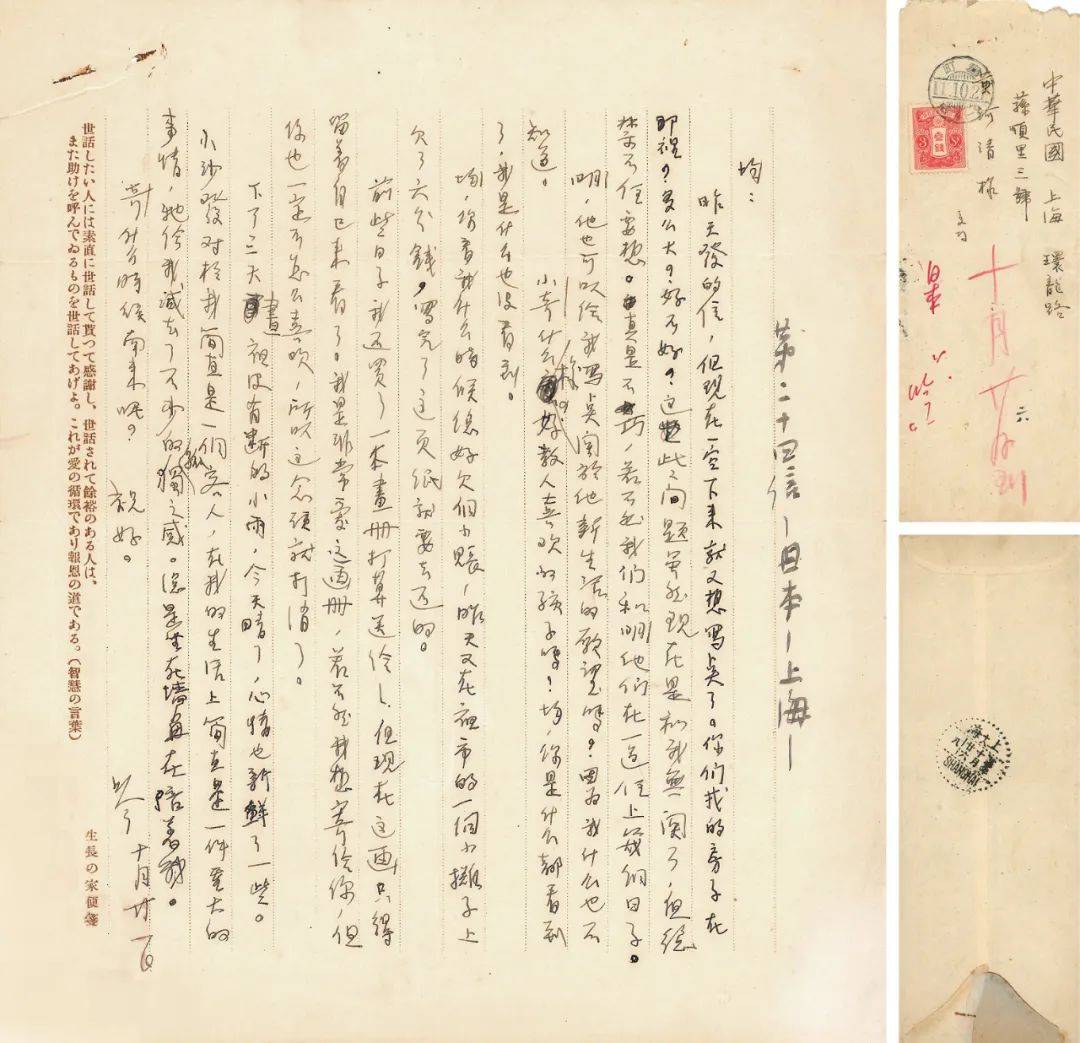 第二十四信—日本—上海—
均：
昨天發的信，但現在一空下来就又想寫点了。你们找的房子在
那裡？多么大？好不好？這些问題虽然現在是和我無関了，但總
禁不住要想。真是不巧，若不然我们和明他们在一道住上幾個日子。
明，他也可以给我寫点関於他新生活的願望嗎？因為我什么也不
知道。
小奇什么樣？好教人喜欢的孩子嗎？均，你是什么都看到
了，我是什么也没看到。
均，你看我什么時候總好欠個小賬，昨天又在夜市的一個小攤子上
欠了六分錢，寫完了这页纸就要去还的。
前些日子我还買了一本畫册打算送给L，但現在这画只得
留着自己来看了。我是非常愛这画册，若不然我想寄给你，但
你也一定不怎么喜欢，所以这念頭就打消了。
下了三天晝夜没有断的小雨，今天晴了，心情也新鮮了一些。
小沙發对於我简直是一個客人，在我的生活上简直是一件重大的
事情，牠给我减去了不少的孤獨之感。總是坐在墙角在陪着我。
奇什么時候南来呢？ 祝好。
吟 十月廿一日
世話したい人には素直に世話して貰つて感謝し、世話されて餘裕のある人は、
また助けを呼んでゐるものを世話してあげよ。これが愛の循環であり報恩の道である。（智慧の言葉）
生長の家便箋
中華民國 上海 環龍路
三號
河清様
11.10.2
十月廿六到
上海
SHANGHAI